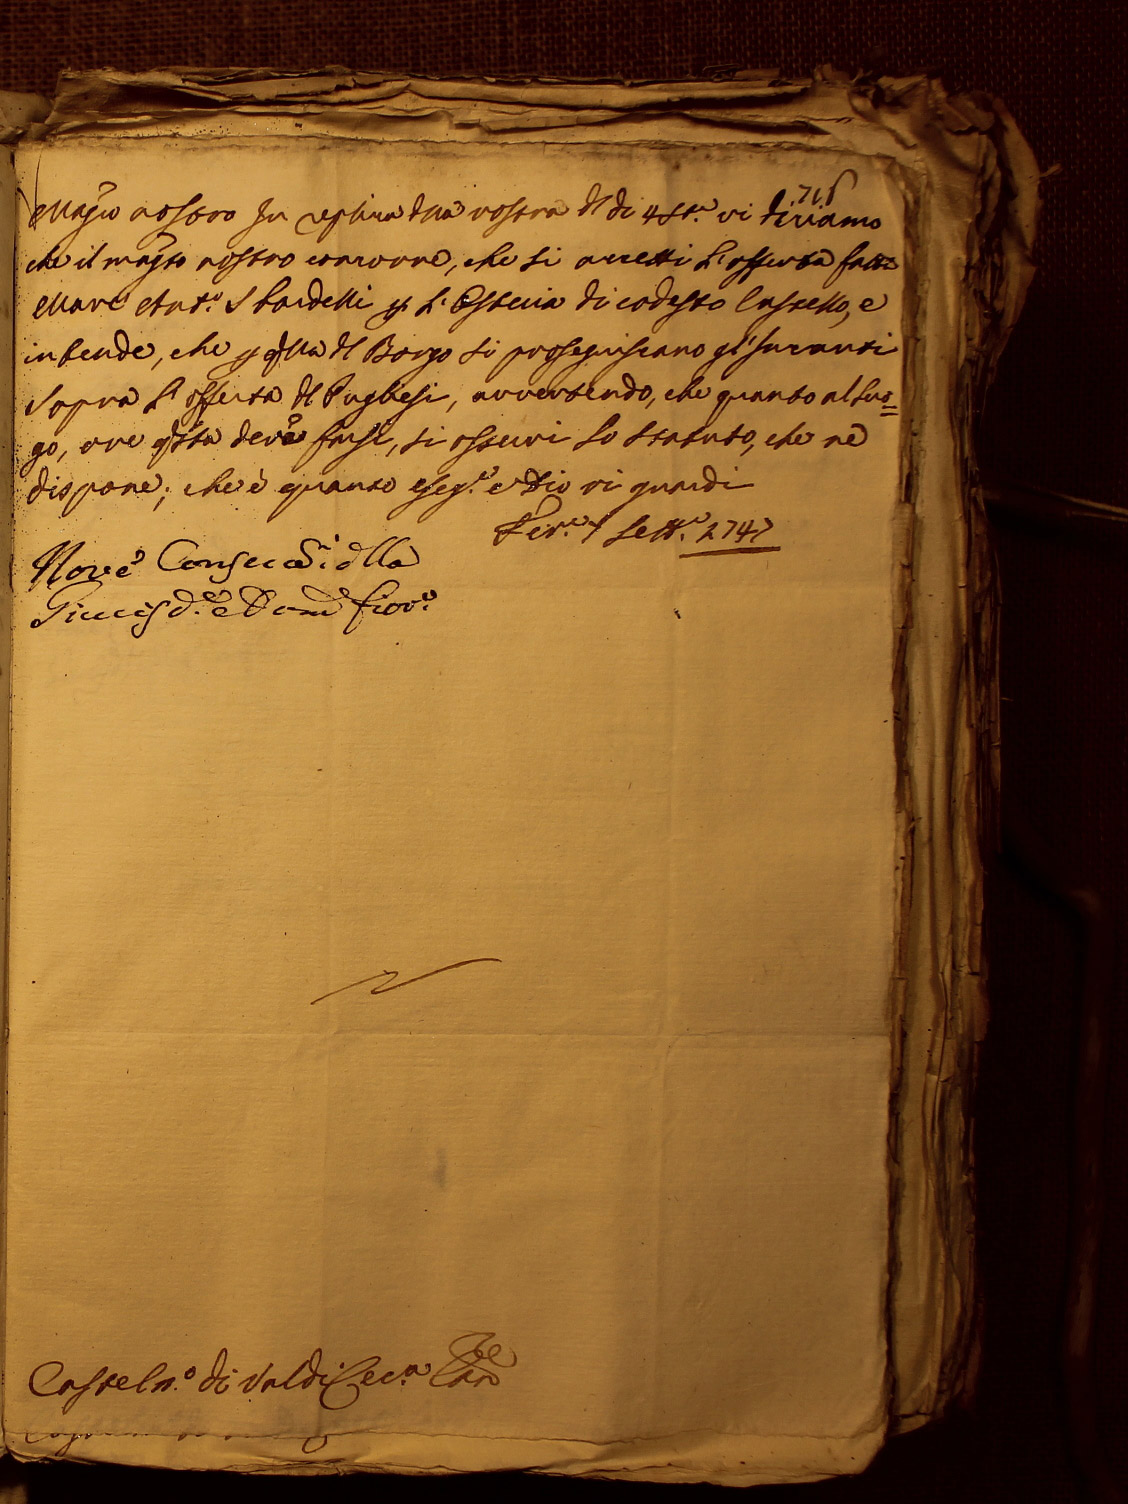 716
Mag.co nostro In replica d'lla vostra d'l di 4 st.e vi diciamo
che il mag.to nostro concorre, che si accetti l'offerta fatta
Marc' Ant.o Sbardelli p l'Osteria di codesto Castello, e
intende, che p q'lla d'l Borgo si proseguiscano gl'Incanti
sopra l'offerta d'l Pughesi, avvertendo, che quanto al luo=
go, ove q'sta deve farsi, si osservi lo statuto, che ne
dispone; che è quanto e Dio vi guardi
Fir.e 7 Sett.e 1747
Nove Conser.ri d'lla
Giurisd.e e Dom.o Fior.o
Casteln.o di Valdicec.a Can.re